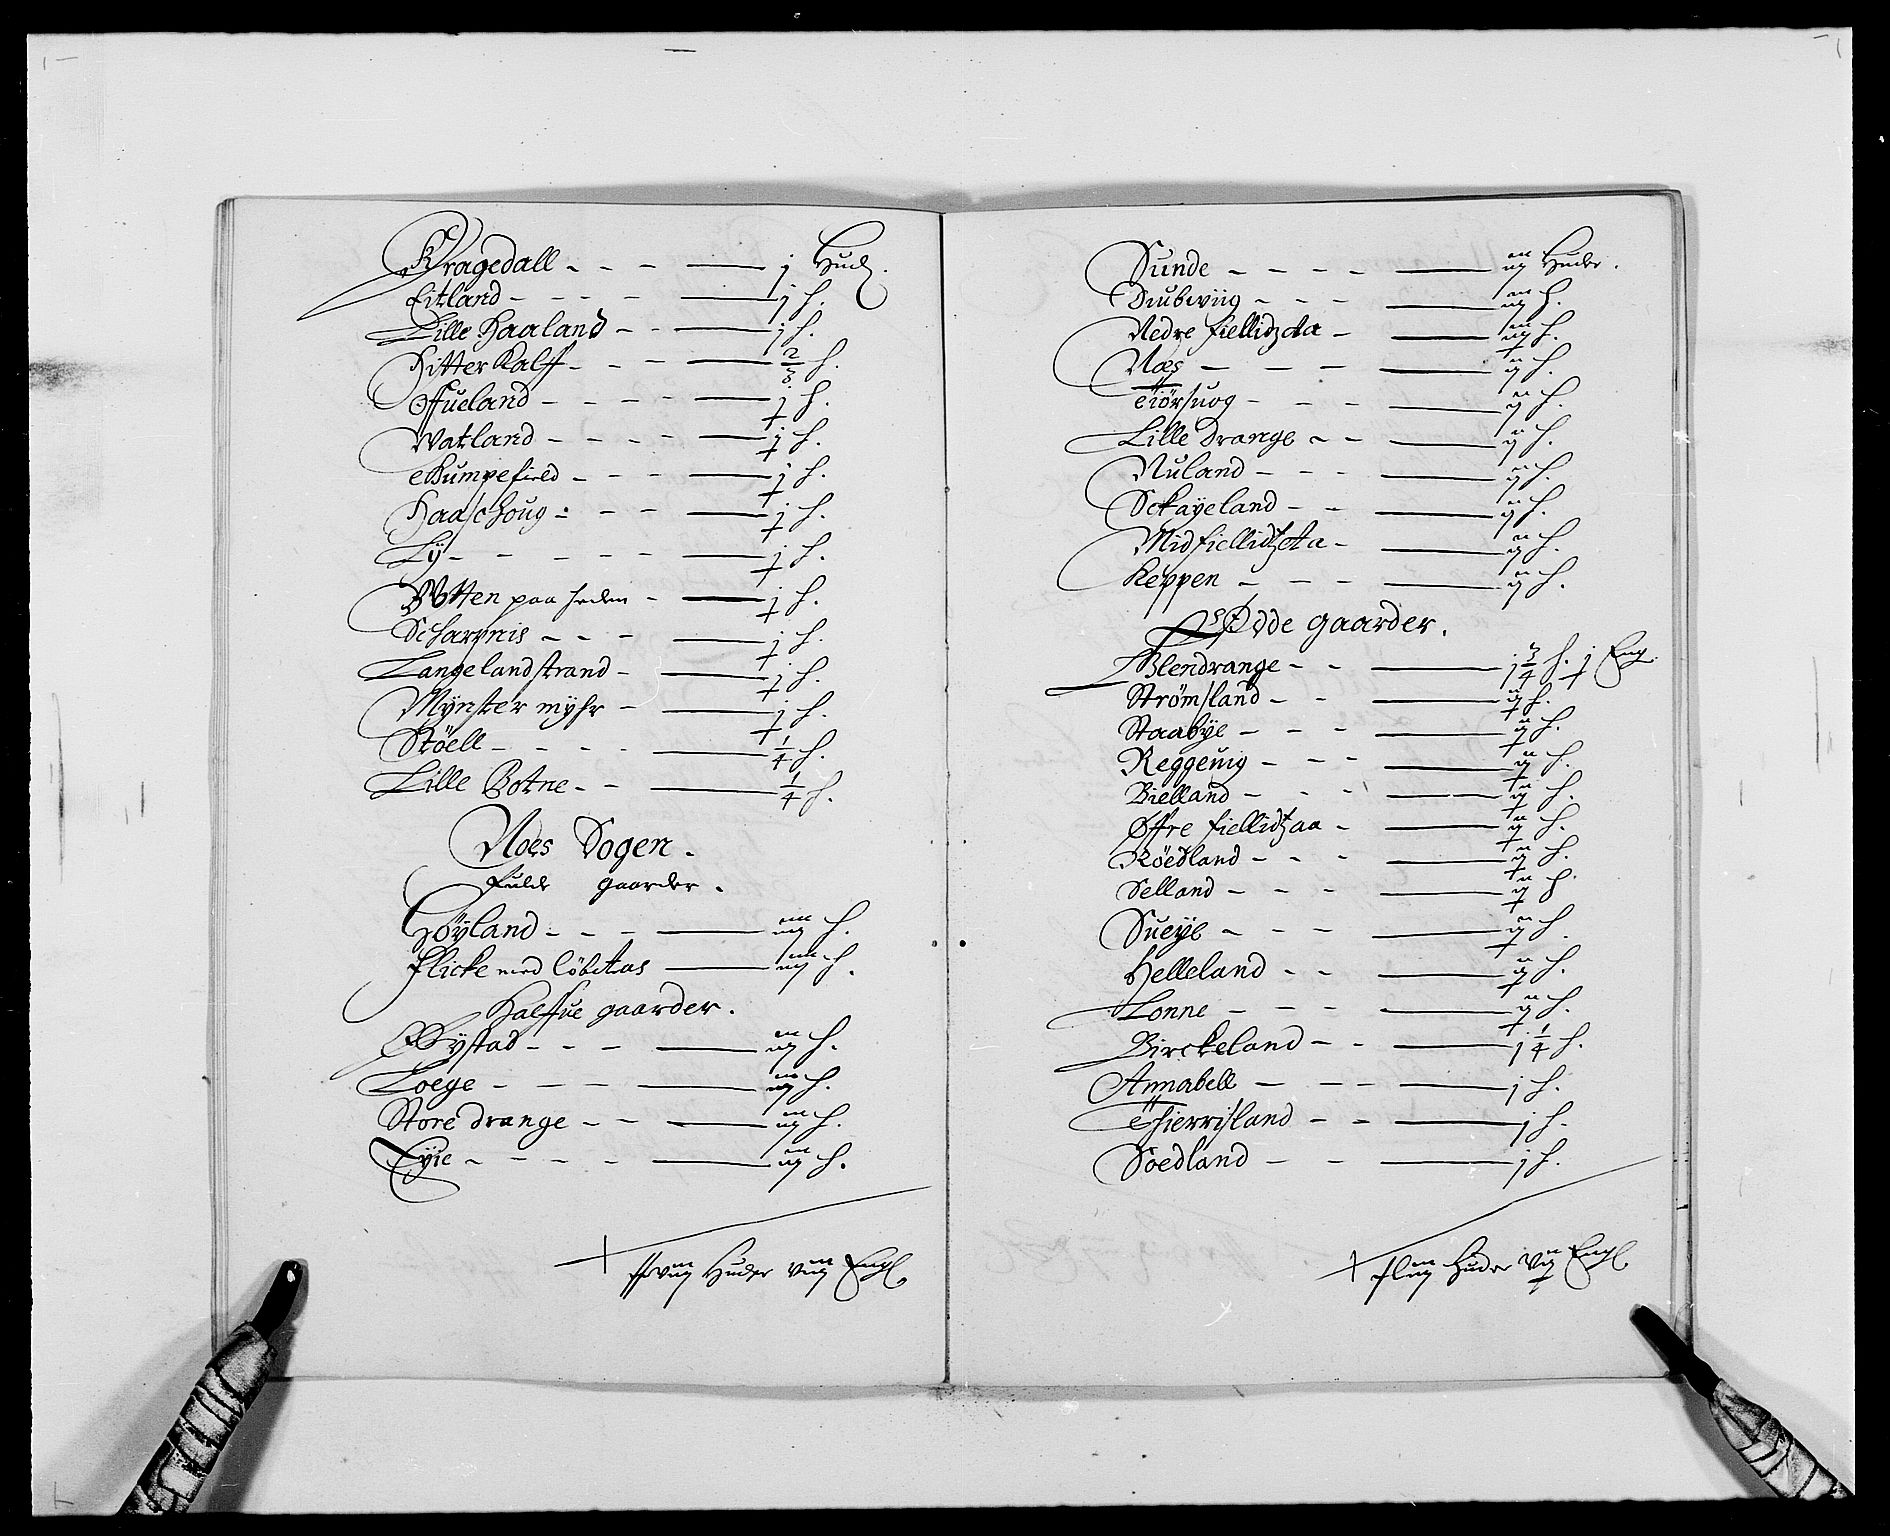 Dragedall - - - j Hud.
Eitland - - - - j h.
Lille Haaland - - j h.
Hitter Kalff - - - 2/3 h.
Øffueland - - - - j h.
Watland - - - - j h.
Rumpefield - - - j h.
Haaschoug - - - j h.
Lÿ - - - - - j h.
Botten paa heden - j h.
Scharpnis - - - j h.
Langelandstrand - j h.
Mÿnster mÿhr - j h.
Stöell - - - - 1/4 h.
Lille Botne - - 1/4 h.
Noes Sogen.
Fulde gaarder.
Höyland - - - iiij h.
Flicke med Löbitas iiij h.
Halffue gaarder.
Rÿstad - - - iij h.
Loege - - - iij h.
Store drange - - iij h.
Eÿie - - - - iij h.
Huder Engl.
Sunde - - - - iij Huder.
Siubwiig - - - iij h.
Nedre fiellidzAa - iij h.
Noes - - - ij h.
Tiörsuog - - - ij h.
Lille Drange - - ij h.
Nuland - - - ij h.
Sckageland - - ij h.
Mid fiellidtzAa - ij h.
Keppen - - - ij h.
Ødde gaarder.
Blendrange - - j 3/4 h. j Eng.
Strömsland - - ij h.
Staabÿe - - - ij h.
Reggeuig - - - ij h.
Bielland - - - ij h.
Øffre fiellidtzaa - ij h.
Röedland - - - ij h.
Selland - - - ij h
Sueÿe - - - ij h.
Helleland - - ij h.
Lonne - - - ij h.
Birckeland - - j 1/4 h.
Annabell - - - j h.
Thierrisland - - j h.
Soedland - - j h.
Huder Engl